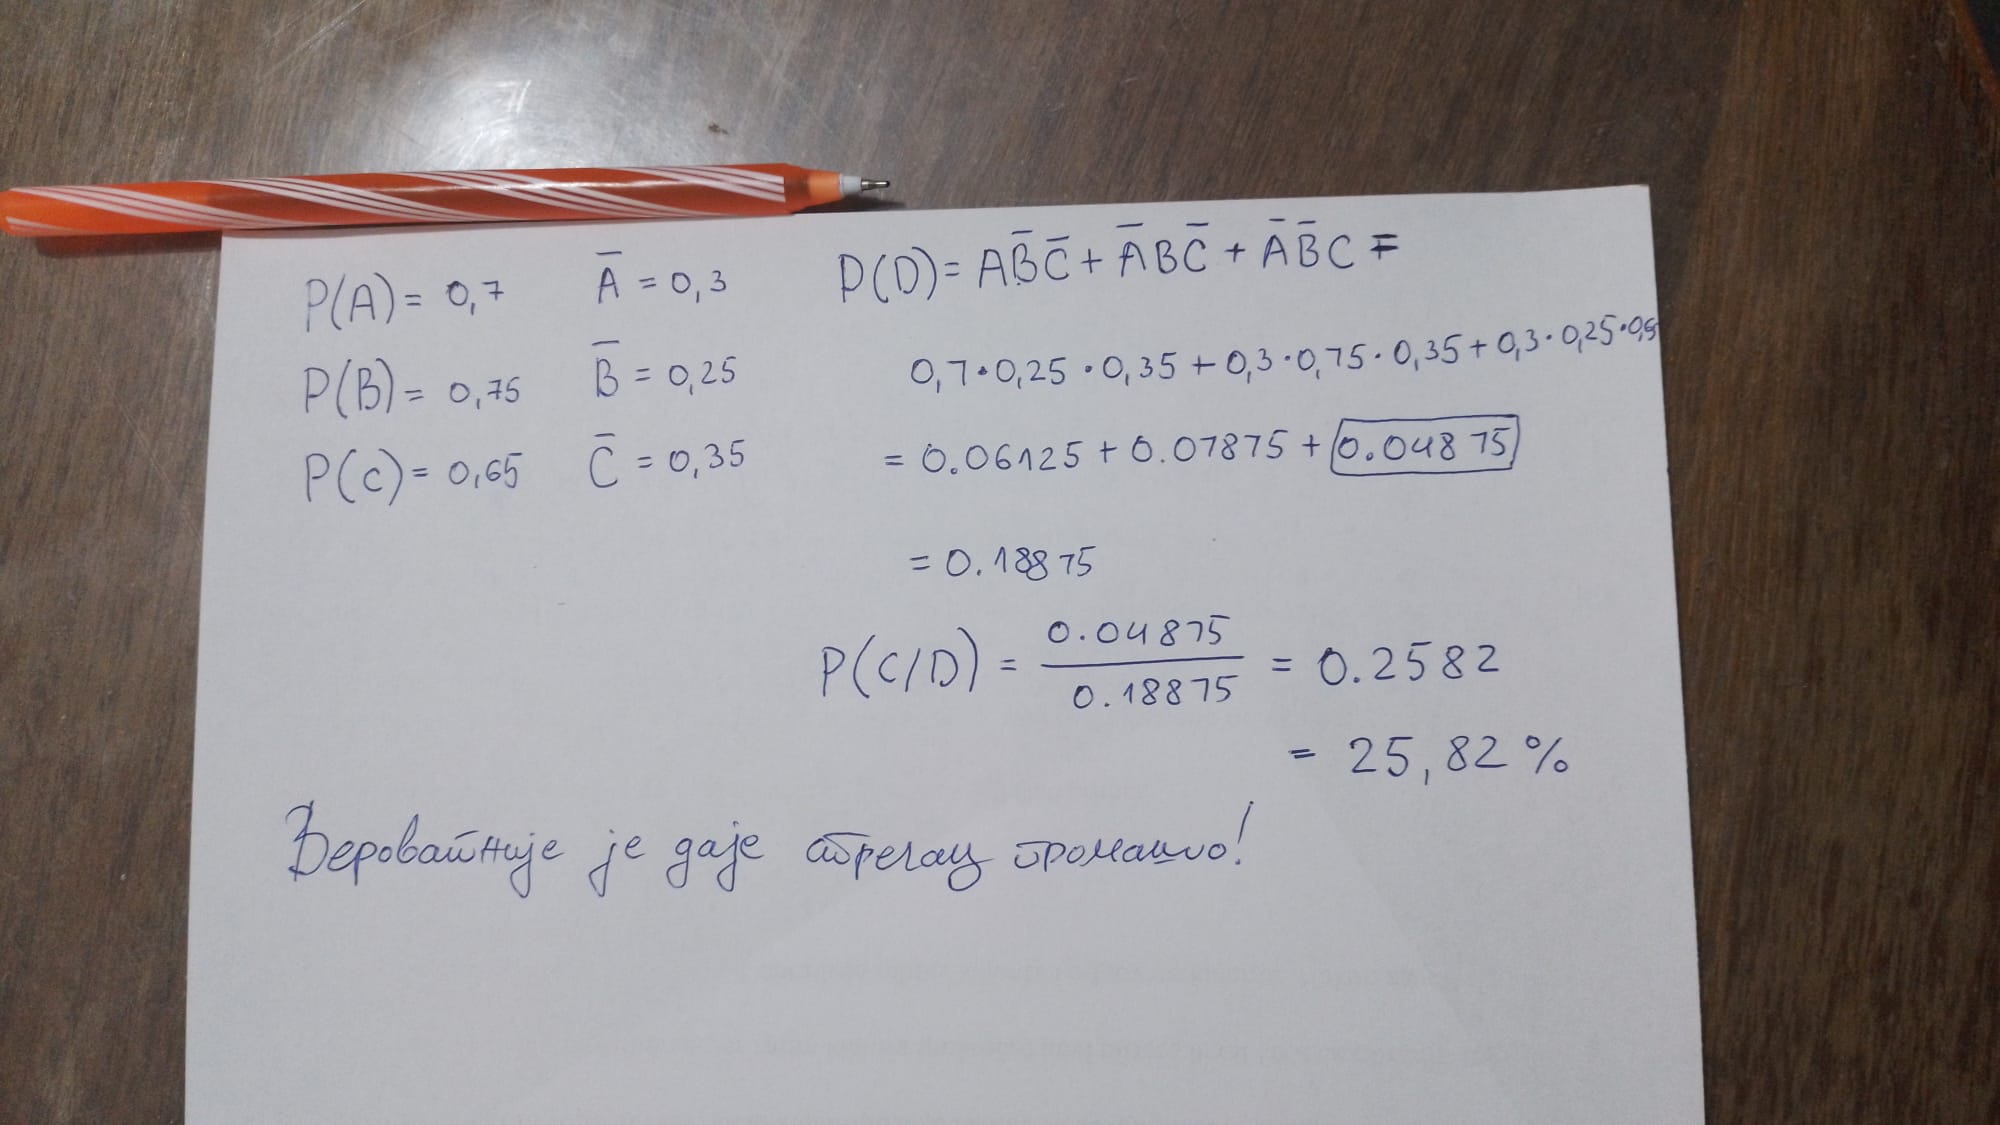 P(A) = 0,7
P(B) = 0,75
P(C) = 0,65
A̅ = 0,3
B̅ = 0,25
C̅ = 0,35
P(D) = AB̅C̅ + A̅BC̅ + A̅B̅C =
0,7·0,25·0,35 + 0,3·0,75·0,35 + 0,3·0,25·
= 0.06125 + 0.07875 + 0.04875
= 0.18875
P(C/D) = 0.04875 / 0.18875 = 0.2582
= 25,82 %
Вероватније је даје стрелац промашио!